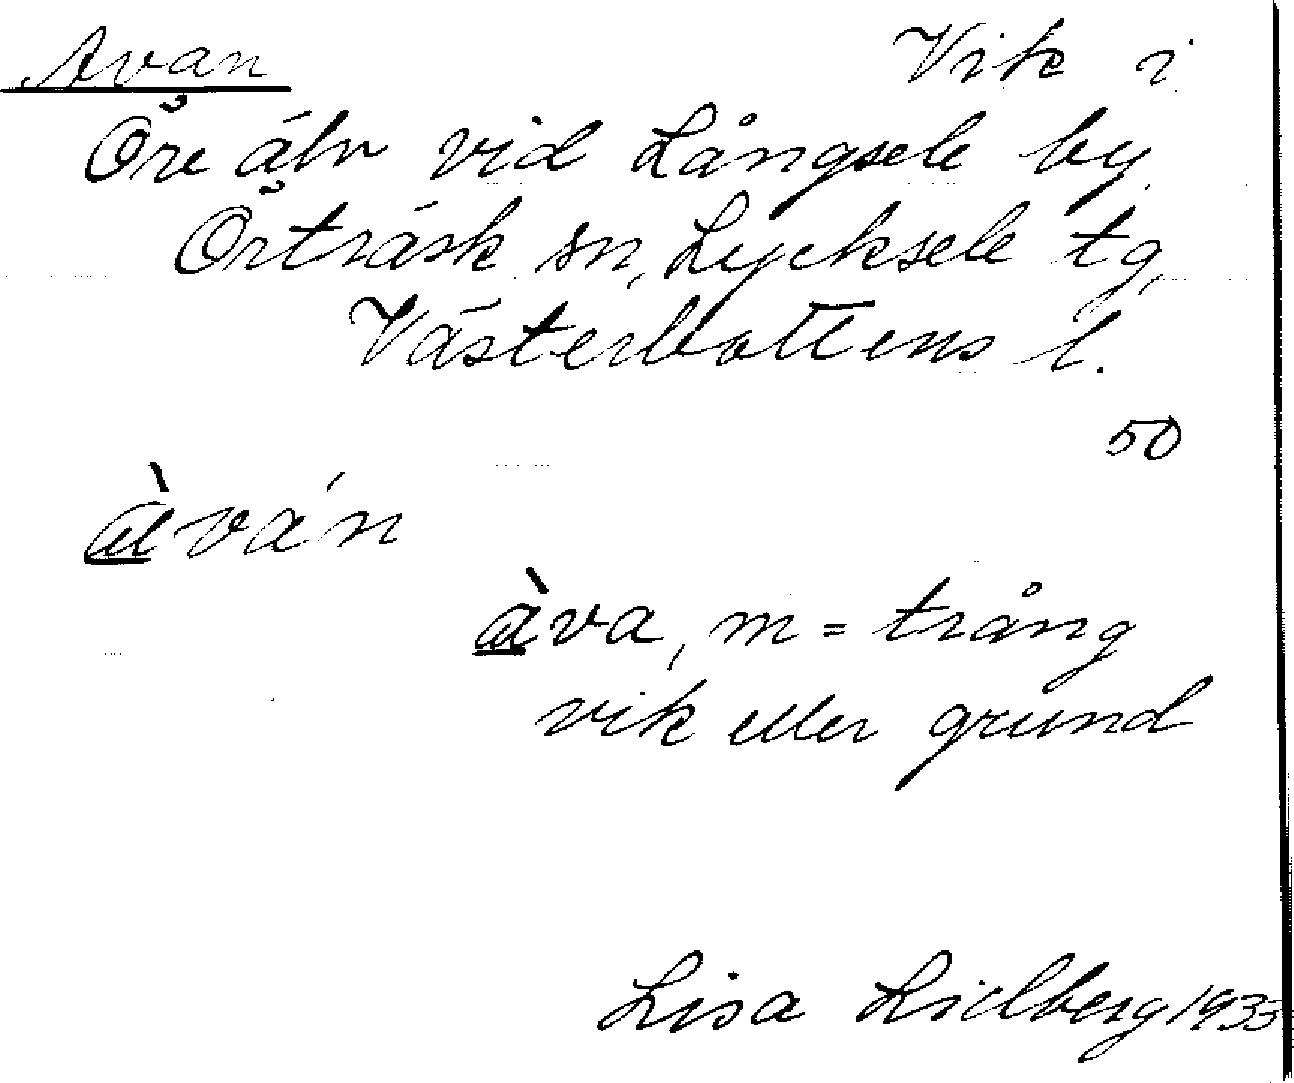 Avan Vik i
Öre älv vid Långsele by
Örträsk sn, Lycksele tg,
Västerbottens l.
50
àván
àva, m = trång
vik eller grund
Lisa Lidberg 1933